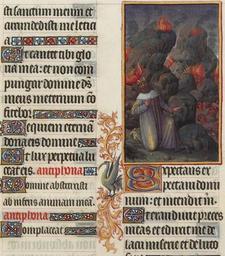 sti sanctum meum et
circundedisti me letici
a
Ut cantet tibi glo
ria mea: et non com
pungar domine de
us meus in eternum co
fitebor
Requiem eternam
dona eis domine
Et lux perpetua lu
ceat eis. antiphona
Domine abstraxisti
ab inferis animam meam.
antiphona
Complaceat
Expectans ex
pectavi domi
num: et intendit m
Et exaudivit preces
meas et eduxit me de
lacu miserie et de luto